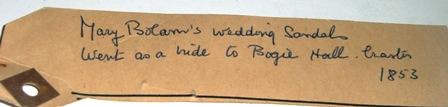 Mary Bolam's wedding Sandals
Went as a bride to Bogie Hall. Craster
1853